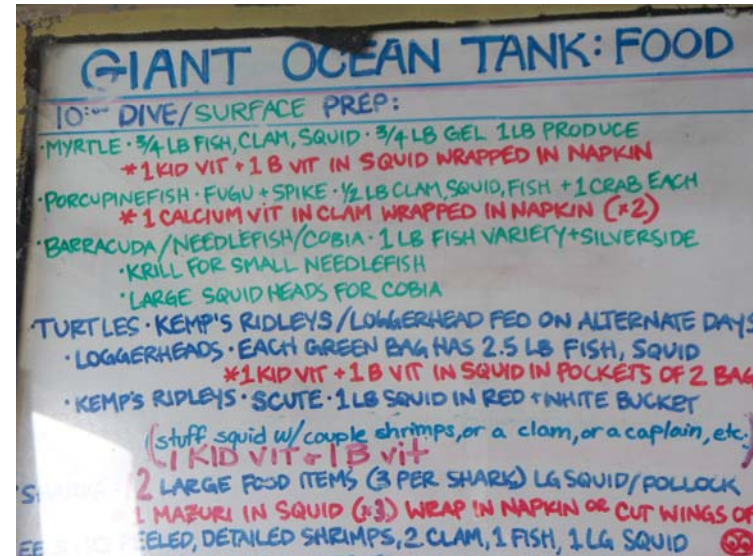 GIANT OCEAN TANK: FOOD
10:- DIVE/SURFACE PREP:
·MYRTLE · 3/4 LB FISH, CLAM, SQUID · 3/4 LB GEL 1LB PRODUCE
* 1 KID VIT + 1 B VIT IN SQUID WRAPPED IN NAPKIN
·PORCUPINEFISH · FUGU + SPIKE · 1/2 LB CLAM, SQUID, FISH + 1 CRAB EACH
* 1 CALCIUM VIT IN CLAM WRAPPED IN NAPKIN (x2)
·BARRACUDA/NEEDLEFISH/COBIA · 1 LB FISH VARIETY + SILVERSIDE
·KRILL FOR SMALL NEEDLEFISH
·LARGE SQUID HEADS FOR COBIA
·TURTLES · KEMP'S RIDLEYS / LOGGERHEAD FED ON ALTERNATE DAYS
·LOGGERHEADS · EACH GREEN BAG HAS 2.5 LB FISH, SQUID
*1 KID VIT + 1 B VIT IN SQUID IN POCKETS OF 2 BAG
·KEMP'S RIDLEYS · SCUTE · 1 LB SQUID IN RED + WHITE BUCKET
(stuff squid w/ couple shrimps, or a clam, or a caplain, etc.)
1 KID VIT + 1 B vit
2 LARGE FOOD ITEMS (3 PER SHARK) LG SQUID/POLLOCK
1 MAZURI IN SQUID (x3) WRAP IN NAPKIN OR CUT WINGS OF
PEELED, DETAILED SHRIMPS, 2 CLAM, 1 FISH, 1 LG SQUID